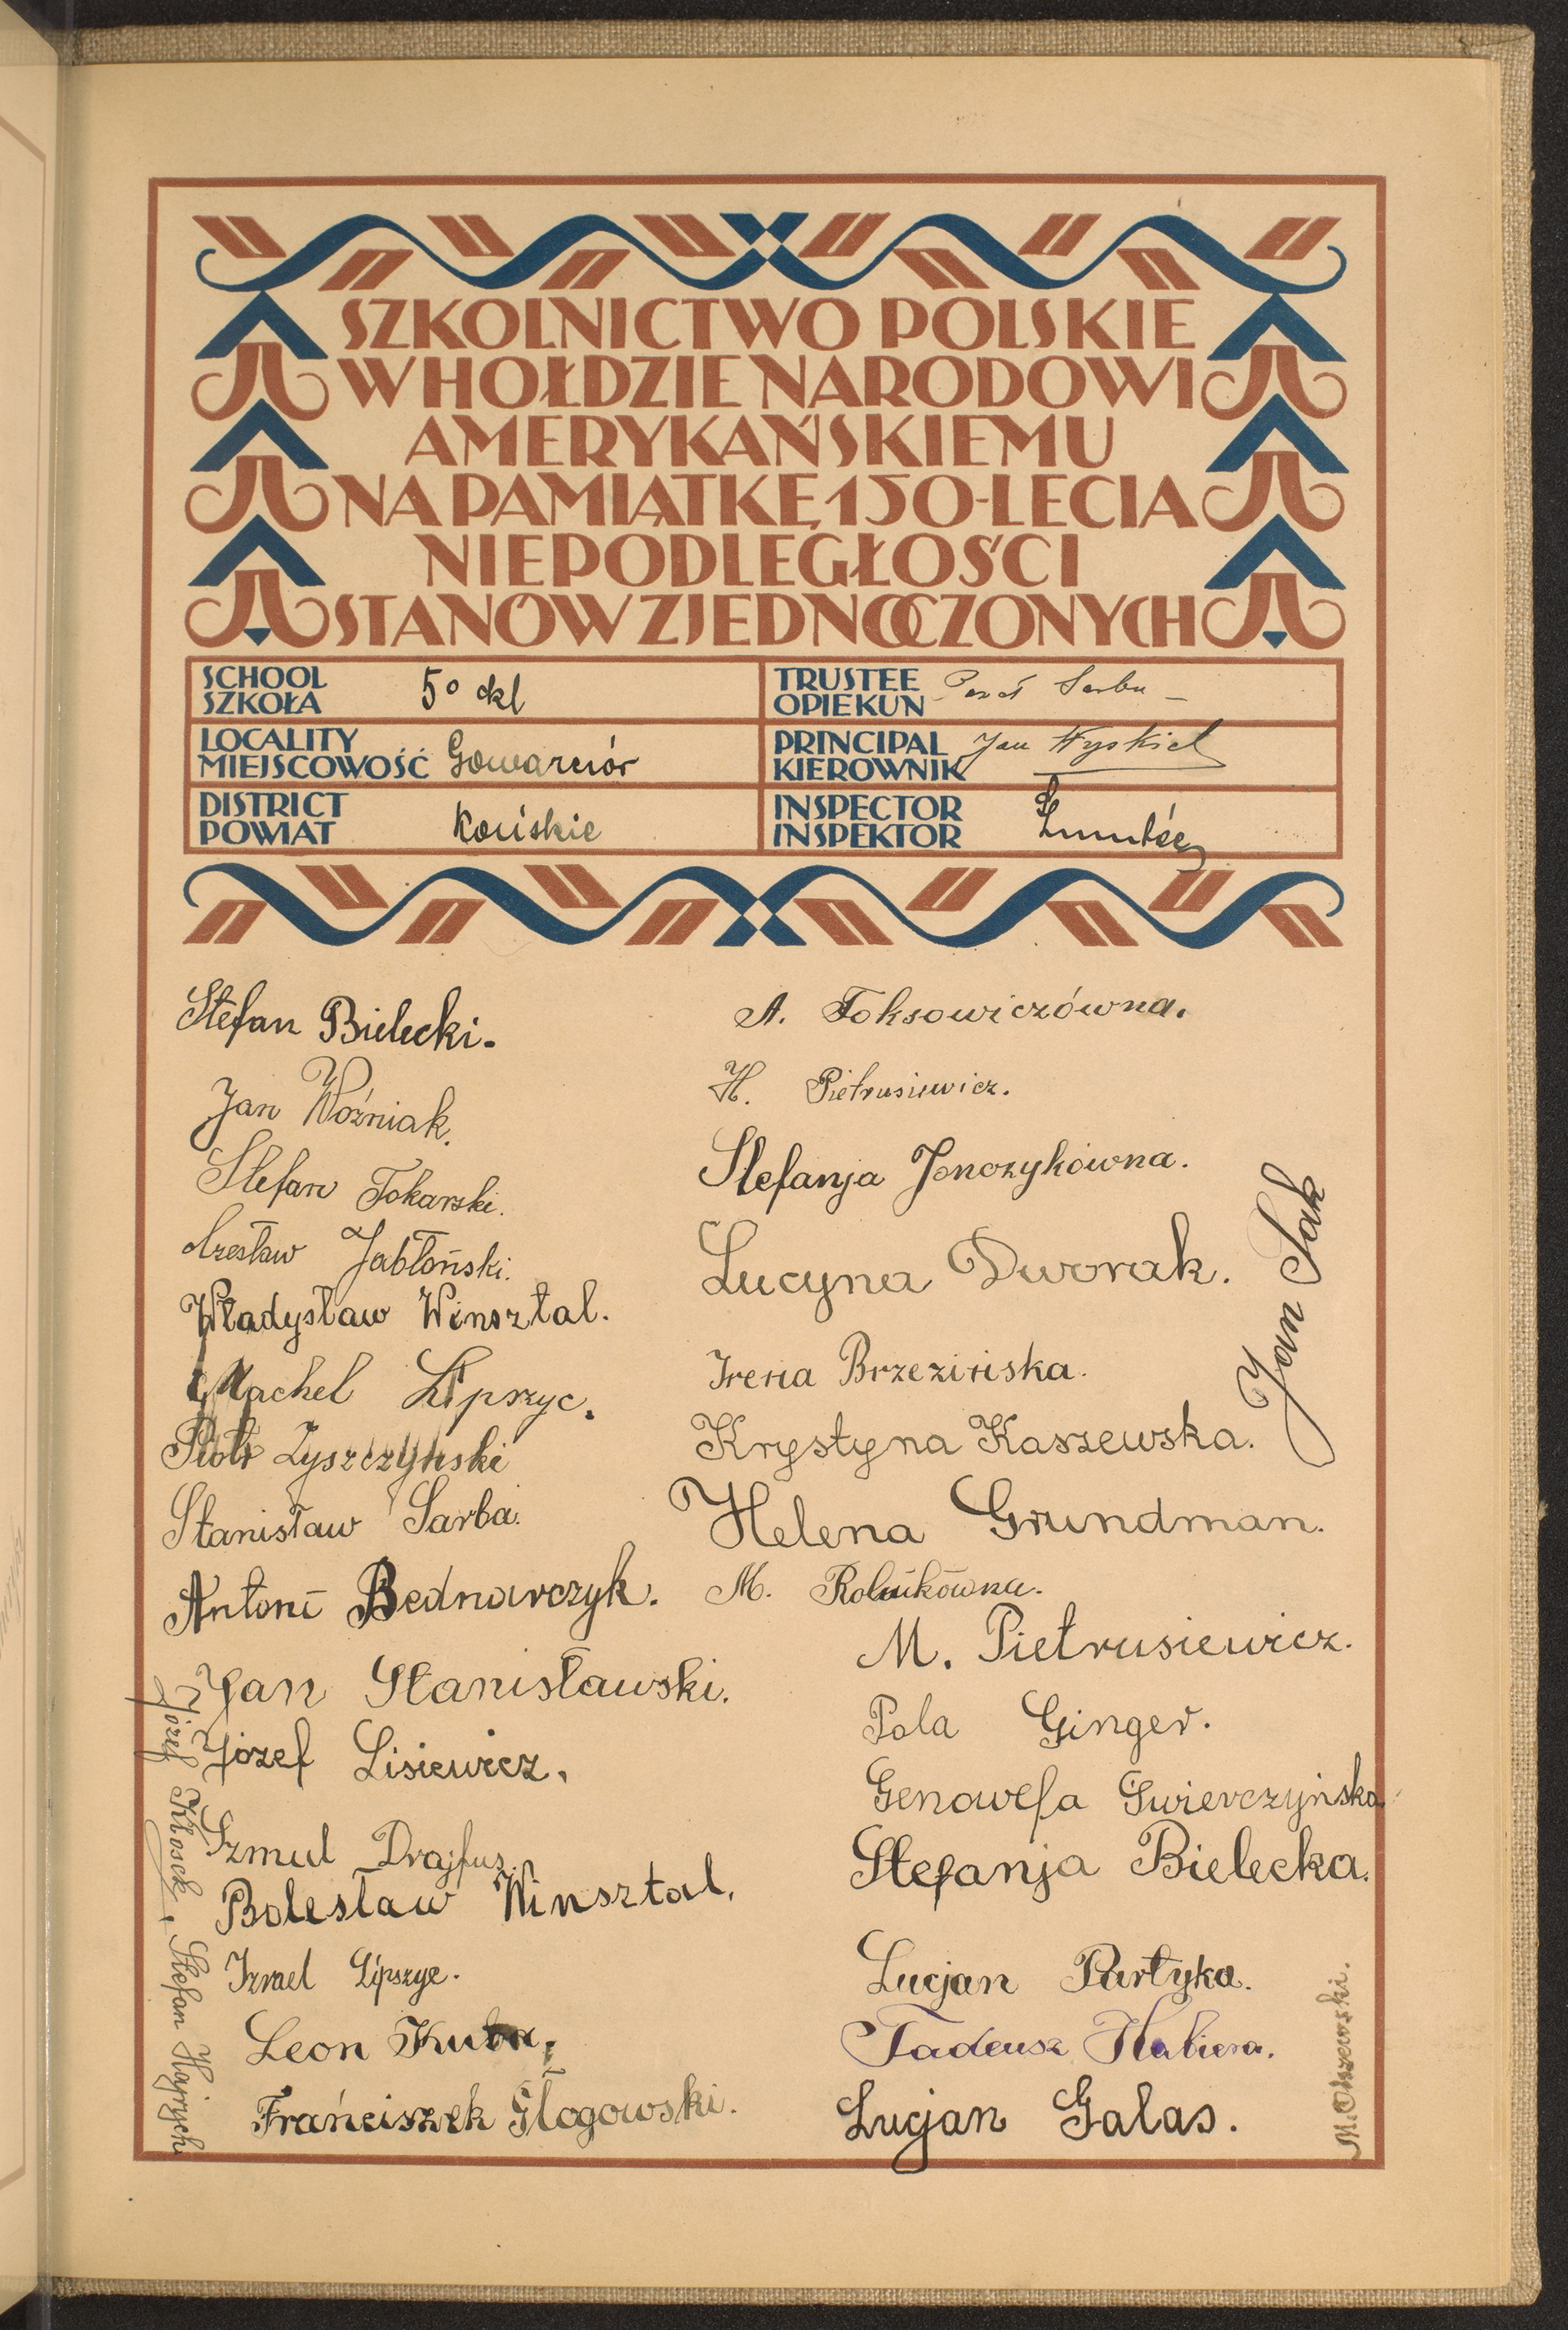 SZKOLNICTWO POLSKIE
W HOŁDZIE NARODOWI
AMERYKAŃSKIEMU
NA PAMIĄTKĘ 150-LECIA
NIEPODLEGŁOŚCI
STANÓW ZJEDNOCZONYCH
SCHOOL
SZKOŁA 5o kl
TRUSTEE
OPIEKUN Sarba
LOCALITY
MIEJSCOWOŚĆ Gowarczów
PRINCIPAL
KIEROWNIK Jan Wyskiel
DISTRICT
POWIAT Końskie
INSPECTOR
INSPEKTOR
Stefan Bielecki.
Jan Woźniak.
Stefan Tokarski.
Czesław Jabłoński.
Władysław Winsztal.
Machel Lipszyc.
Piotr Zyszczyński
Stanisław Sarba.
Antoni Bednarczyk.
Jan Stanisławski.
Józef Lisiewicz.
Szmul Drajfus.
Bolesław Winsztal.
Izrael Lipszyc.
Leon Kuta.
Frańciszek Głogowski.
Józef Kłosek, Stefan Hajrych
A. Foksowiczówna.
H. Pietrusiewicz.
Stefanja Jonczykówna.
Lucyna Dworak.
Irena Brzezińska.
Krystyna Kaszewska.
Helena Grundman.
M. Rolnikówna.
M. Pietrusiewicz.
Pola Ginger.
Genowefa Swierczyńska
Stefanja Bielecka.
Lucjan Partyka.
Tadeusz Habiera.
Lucjan Galas.
Jan Sak
M. Olszewski.